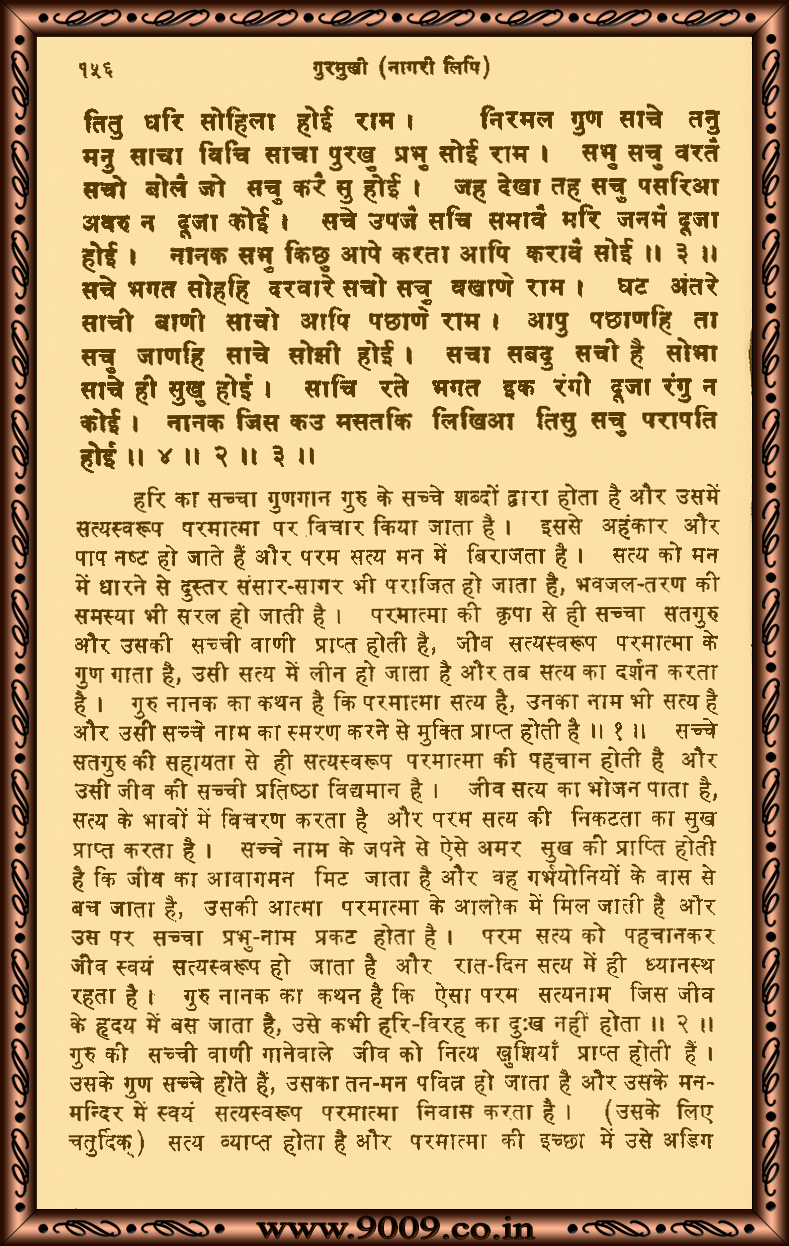 १५६ गुरमुखी (नागरी लिपि)
तितु घरि सोहिला होई राम । निरमल गुण साचे तनु
मनु साचा विचि साचा पुरखु प्रभु सोई राम । सभु सचु वरतै
सचो बोलै जो सचु करै सु होई । जह देखा तह सचु पसरिआ
अवरु न दूजा कोई । सचे उपजै सचि समावै मरि जनमै दूजा
होई । नानक सभु किछु आपे करता आपि करावै सोई ॥ ३ ॥
सचे भगत सोहहि दरवारे सचो सचु वखाणे राम । घट अंतरे
साची बाणी साचो आपि पछाणे राम । आपु पछाणहि ता
सचु जाणहि साचे सोझी होई । सचा सबदु सची है सोभा
साचे ही सुखु होई । साचि रते भगत इक रंगी दूजा रंगु न
कोई । नानक जिस कउ मसतकि लिखिआ तिसु सचु परापति
होई ॥ ४ ॥ २ ॥ ३ ॥
हरि का सच्चा गुणगान गुरु के सच्चे शब्दों द्वारा होता है और उसमें
सत्यस्वरूप परमात्मा पर विचार किया जाता है । इससे अहंकार और
पाप नष्ट हो जाते हैं और परम सत्य मन में बिराजता है । सत्य को मन
में धारने से दुस्तर संसार-सागर भी पराजित हो जाता है, भवजल-तरण की
समस्या भी सरल हो जाती है । परमात्मा की कृपा से ही सच्चा सतगुरु
और उसकी सच्ची वाणी प्राप्त होती है, जीव सत्यस्वरूप परमात्मा के
गुण गाता है, उसी सत्य में लीन हो जाता है और तब सत्य का दर्शन करता
है । गुरु नानक का कथन है कि परमात्मा सत्य है, उनका नाम भी सत्य है
और उसी सच्चे नाम का स्मरण करने से मुक्ति प्राप्त होती है ॥ १ ॥ सच्चे
सतगुरु की सहायता से ही सत्यस्वरूप परमात्मा की पहचान होती है और
उसी जीव की सच्ची प्रतिष्ठा विद्यमान है । जीव सत्य का भोजन पाता है,
सत्य के भावों में विचरण करता है और परम सत्य की निकटता का सुख
प्राप्त करता है । सच्चे नाम के जपने से ऐसे अमर सुख की प्राप्ति होती
है कि जीव का आवागमन मिट जाता है और वह गर्भयोनियों के वास से
बच जाता है, उसकी आत्मा परमात्मा के आलोक में मिल जाती है और
उस पर सच्चा प्रभु-नाम प्रकट होता है । परम सत्य को पहचानकर
जीव स्वयं सत्यस्वरूप हो जाता है और रात-दिन सत्य में ही ध्यानस्थ
रहता है । गुरु नानक का कथन है कि ऐसा परम सत्यनाम जिस जीव
के हृदय में बस जाता है, उसे कभी हरि-विरह का दुःख नहीं होता ॥ २ ॥
गुरु की सच्ची वाणी गानेवाले जीव को नित्य खुशियाँ प्राप्त होती हैं ।
उसके गुण सच्चे होते हैं, उसका तन-मन पवित्र हो जाता है और उसके मन-
मन्दिर में स्वयं सत्यस्वरूप परमात्मा निवास करता है । (उसके लिए
चतुर्दिक्) सत्य व्याप्त होता है और परमात्मा की इच्छा में उसे अडिग
www.9009.co.in